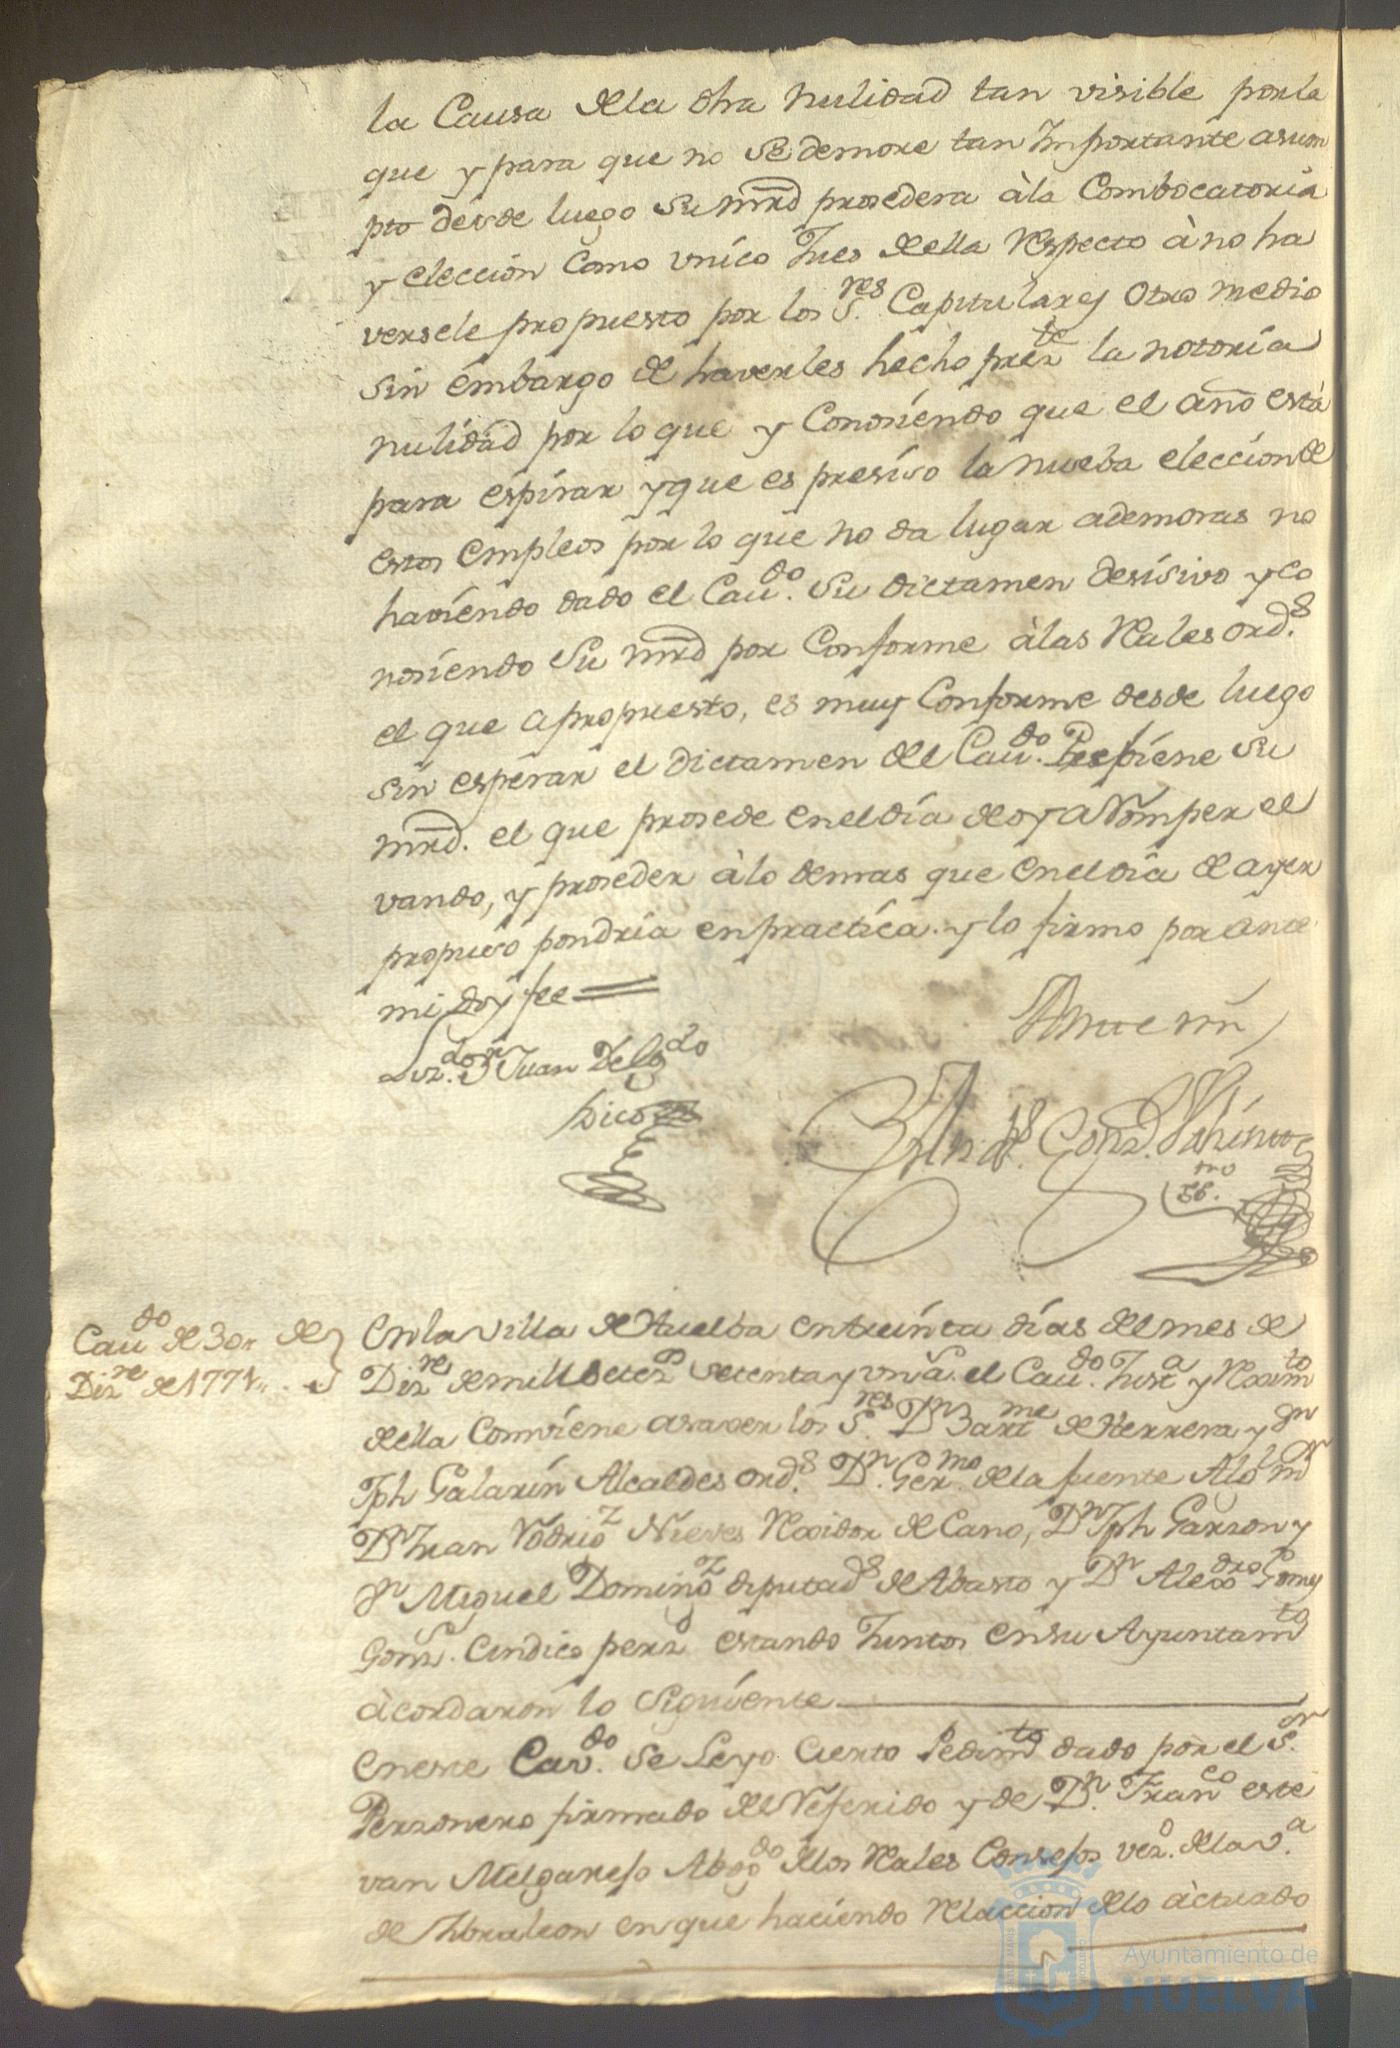 la Causa dela dha nulidad tan visible porla
que y para que no se demore tan Importante asum
pto desde luego su mrd prosedera àla Combocatoria
y eleccion como vnico Jues della respecto à no ha
versele propuesto por los S.res Capitulares otro medio
sin embargo de haverles hecho prez.te la notoria
nulidad por lo que y Conosiendo que el año està
para espirar y que es presiso la nueba eleccion de
estos empleos por lo que no da lugar ademoras no
haviendo dado el Cau.do su dictamen desisivo y co
nosiendo Su mrd por Conforme àlas Rales ord.s
el que apropuesto, es muy Conforme desde luego
sin esperar el dictamen del Cau.do su
mrd. el que prosede enel dia de oy a romper el
vando, y proseder àlo demas que enel dia de ayer
propuso pondria en practica. y lo firmo por ante
mi doy fee
Liz.do D.n Juan Delg.do
Pico
Ante mi
And.s Gonz.
ss.no
Cau.do de 30,, de
Diz.re de 1771,,
En la villa de Huelba en treinta dias del mes de
Diz.re de mill setez.s setenta y vn a.s el Cau.do Just.a y Rexim.to
della Combiene asaver los S.res D.n Bart.me de Herrera y d.n
Jph Galarin Alcaldes ord.s D.n Ger.mo de la fuente Alg.l m.r
D.n Juan Rodrig.z Nieves Rexidor de Cano, D.n Jph Garzon y
d.n Miguel Doming.z diputad.s de Abasto y D.n Alexdro Gomes
Gonz.s Cindico perz.o estando Juntos ensu Ayuntam.to
acordaron lo siguiente
Eneste Cav.do se Leyo Cierto Pedim.to dado por el S.or
Perzonero firmado del referido y de D.n Fran.co este
van Melgarejo Abog.do delos Rales Consejos vez.o dela v.a
de Jibraleon en que haciendo relaccion delo actuado
Ayuntamiento de
HUELVA